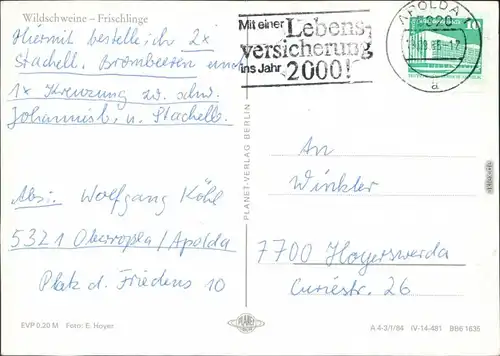 Wildschweine – Frischlinge
Hiermit bestelle ich 2x
Stachell. Brombeeren und
1x Kreuzung zw. schw.
Johannisb. u. Stachelb.
Abs.: Wolfgang Köhl
5321 Oberroßla/Apolda
Platz d. Friedens 10
EVP 0,20 M Foto: E. Hoyer
PLANET-VERLAG BERLIN
PLANET
Mit einer Lebens-
versicherung
ins Jahr 2000!
APOLDA 1
a
10
An
Winkler
7700 Hoyerswerda
Curiestr. 26
A 4-3/1/84 IV-14-481 BB6 1835